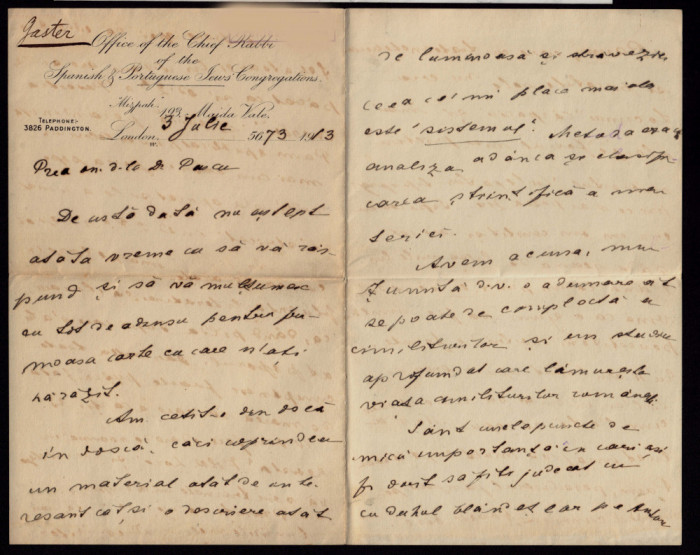 Gaster
Office of the Chief Rabbi
of the
Spanish & Portuguese Jews Congregations.
Mizpah:
193, Maida Vale,
TELEPHONE:-
3826 PADDINGTON.
3 Julie
London, 5673 1913
W.
Prea on. d-le Dr Pascu
De astă dată nu aștept
atâta vreme ca să vă răs
pund și să vă mulțumesc
cu tot de adinsu pentru fru
moasa carte cu care m'ați
dăruit.
Am cetit-o din doscă
în doscă, căci coprindeu
un material atât de inte
resant cât și o descriere atât
de luminoasă și străvezie.
Ceea ce'mi place mai ales
este "sistemul". Metoda
analiza adânca și clasifi-
carea științifică a ma
teriei.
Avem acuma, mul
țumită d.v. o adunare cât
se poate de complectă a
cimiliturilor și un studiu
aprofundat care lămurește
viața cimiliturilor românești
Sânt unele puncte de
mică importanță în cari ași
fi dorit să fie judecat cu
cu duhul blândeț